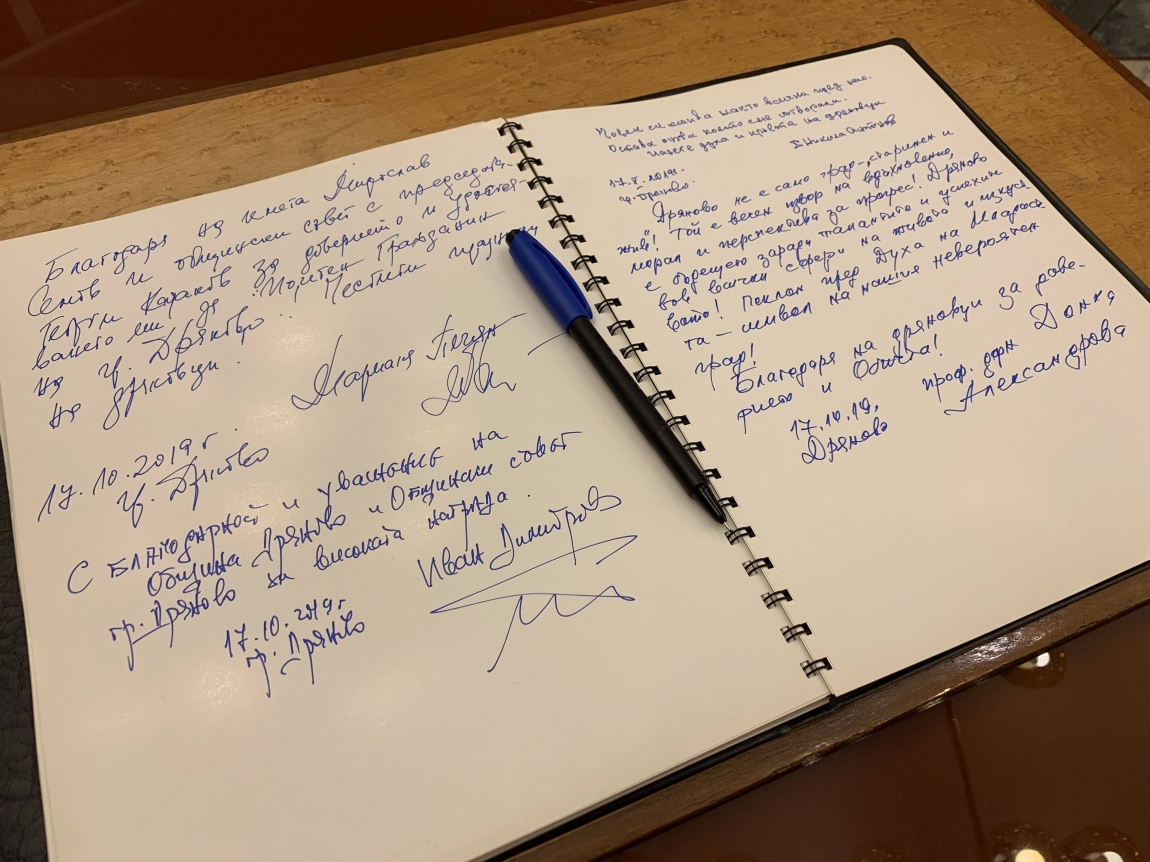 Благодаря на кмета Мирослав
Семов и общински съвет с председател
Георги Казаков за доверието и
ването ми да "Почетен Гражданин
на гр. Дряново". Честити празници
на дряновци.
Мариана Печиян
17.10.2019 г.
гр. Дряново
С благодарност и уважение на
Община Дряново и Общински съвет
гр. Дряново за високата награда.
Иван Димитров
17.10.2019 г
гр. Дряново
Човек си отива както всичко пред него.
Остава онова което сме сътворили.
нашата душа и кръвта на дряновци
Никола
17.X.2019г.
гр. Дряново.
"Дряново не е само град-старинен и
жив! Той е вечен извор на вдъхновение,
морал и перспектива за прогрес! Дряново
е бъдещето заради талантите и успехите
във всички сфери на живота и изкуст-
вото! Поклон пред Духа на Мъдрост-
та - символ на нашия невероятен
град!
Благодаря на дряновци за дове-
рието и Обичта!
17.10.19.
Дряново
проф. дфн Донка
Александрова